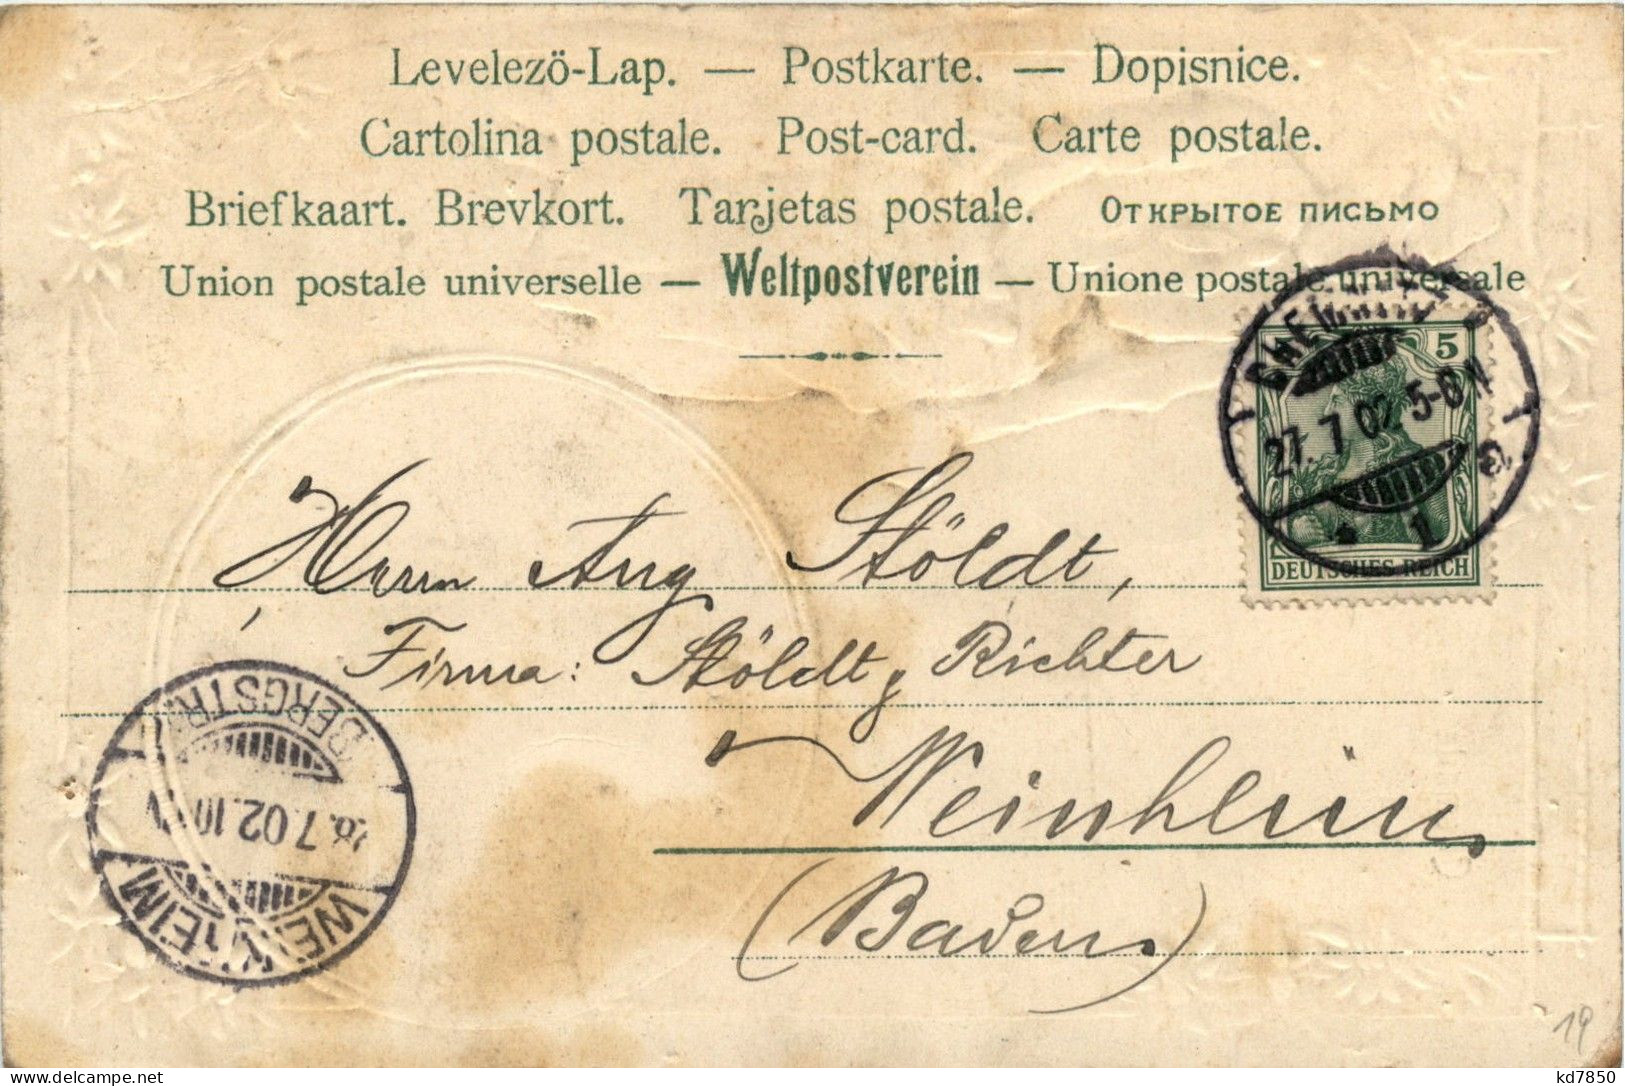 Levelező-Lap. — Postkarte. — Dopisnice.
Cartolina postale. Post-card. Carte postale.
Briefkaart. Brevkort. Tarjetas postale. Открытое письмо
Union postale universelle — Weltpostverein — Unione postale universale
CHEMNITZ
27. 7 02 5-6 N
* 1 a
5
DEUTSCHES REICH
Herrn Aug Stöldt,
Firma: Stöldt & Richter
Weinheim
(Baden)
WEINHEIM
7.02.10
BERGSTR.
19
kd7850